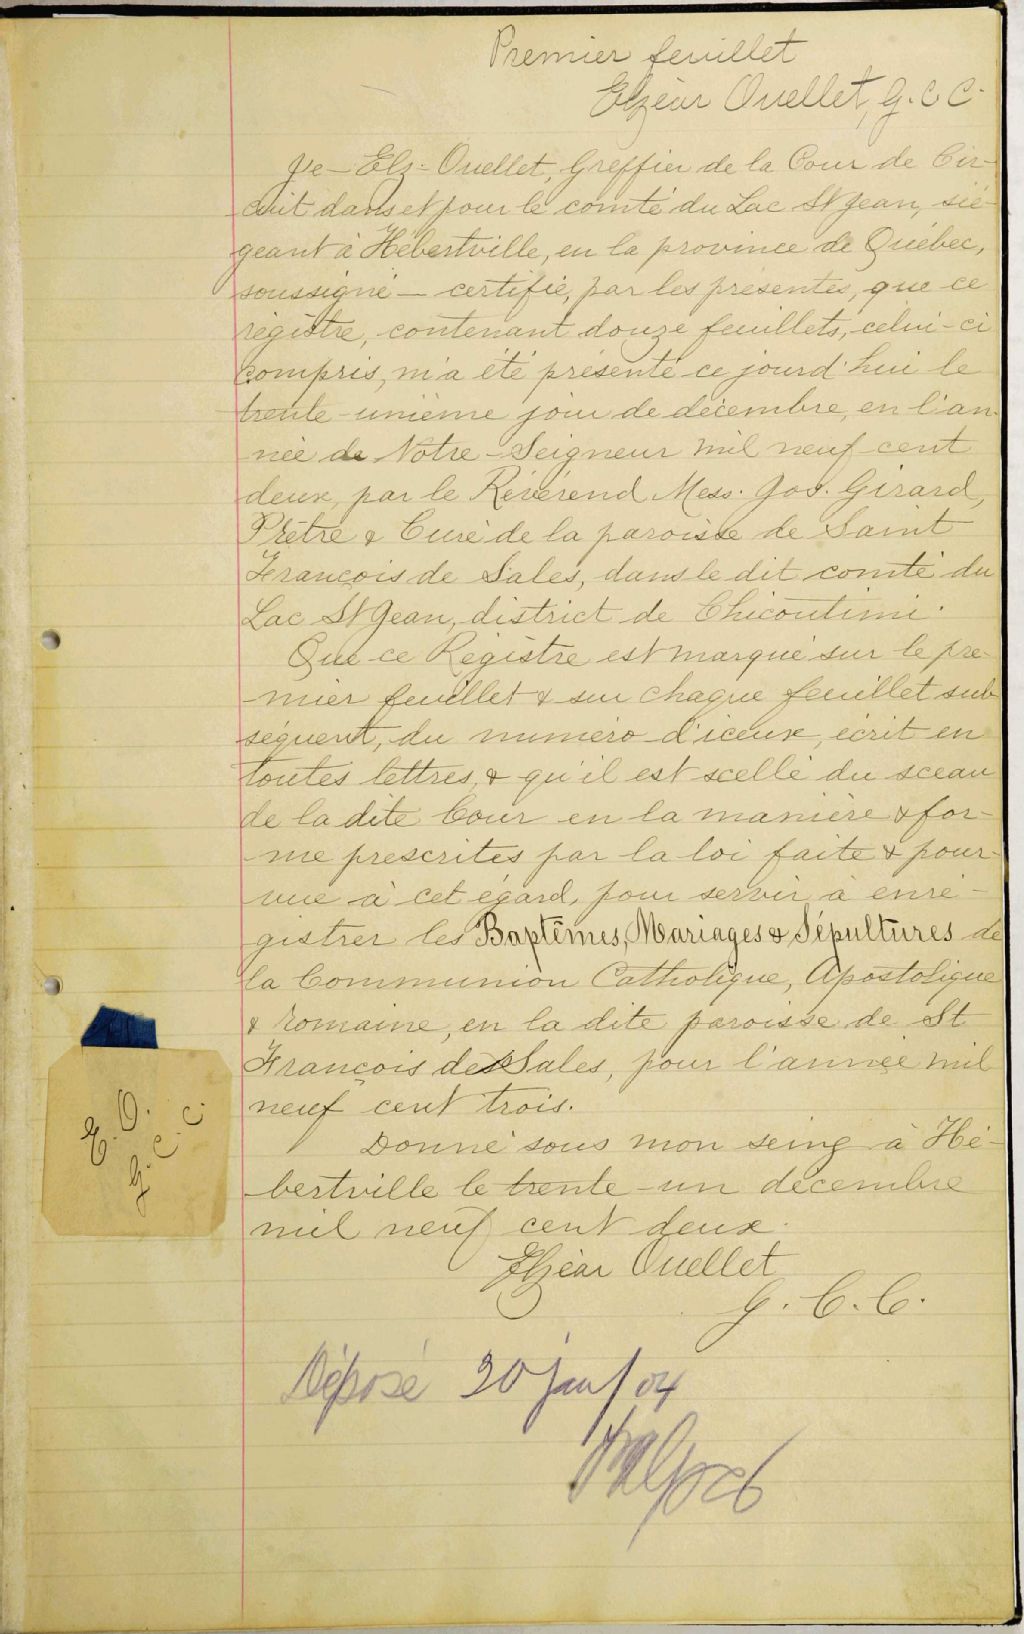 Premier feuillet
Elzéar Ouellet, G. C. C.
Je — Elz. Ouellet, Greffier de la Cour de Cir-
cuit dans et pour le comté du Lac St Jean, sié-
geant à Hébertville, en la province de Québec,
soussigné — certifie, par les présentes, que ce
régistre, contenant douze feuillets, celui-ci
compris, m'a été présenté ce jourd'hui le
trente-unième jour de décembre, en l'an-
née de Notre-Seigneur mil neuf cent
deux, par le Révérend Mess. Jos. Girard,
Prêtre & Curé de la paroisse de Saint
François de Sales, dans le dit comté du
Lac St Jean, district de Chicoutimi.
Que ce Régistre est marqué sur le pre-
mier feuillet & sur chaque feuillet sub-
séquent, du numéro d'iceux, écrit en
toutes lettres, & qu'il est scellé du sceau
de la dite Cour en la manière & for-
me prescrites par la loi faite & pour-
vue à cet égard, pour servir à enré-
gistrer les Baptêmes, Mariages & Sépultures de
la Communion Catholique, Apostolique
& Romaine, en la dite paroisse de St
François de Sales, pour l'année mil
neuf cent trois.
Donné sous mon seing à Hé-
bertville le trente-un décembre
mil neuf cent deux.
Elzéar Ouellet
G. C. C.
E. O.
G. C. C.
Déposé 20 jan/04